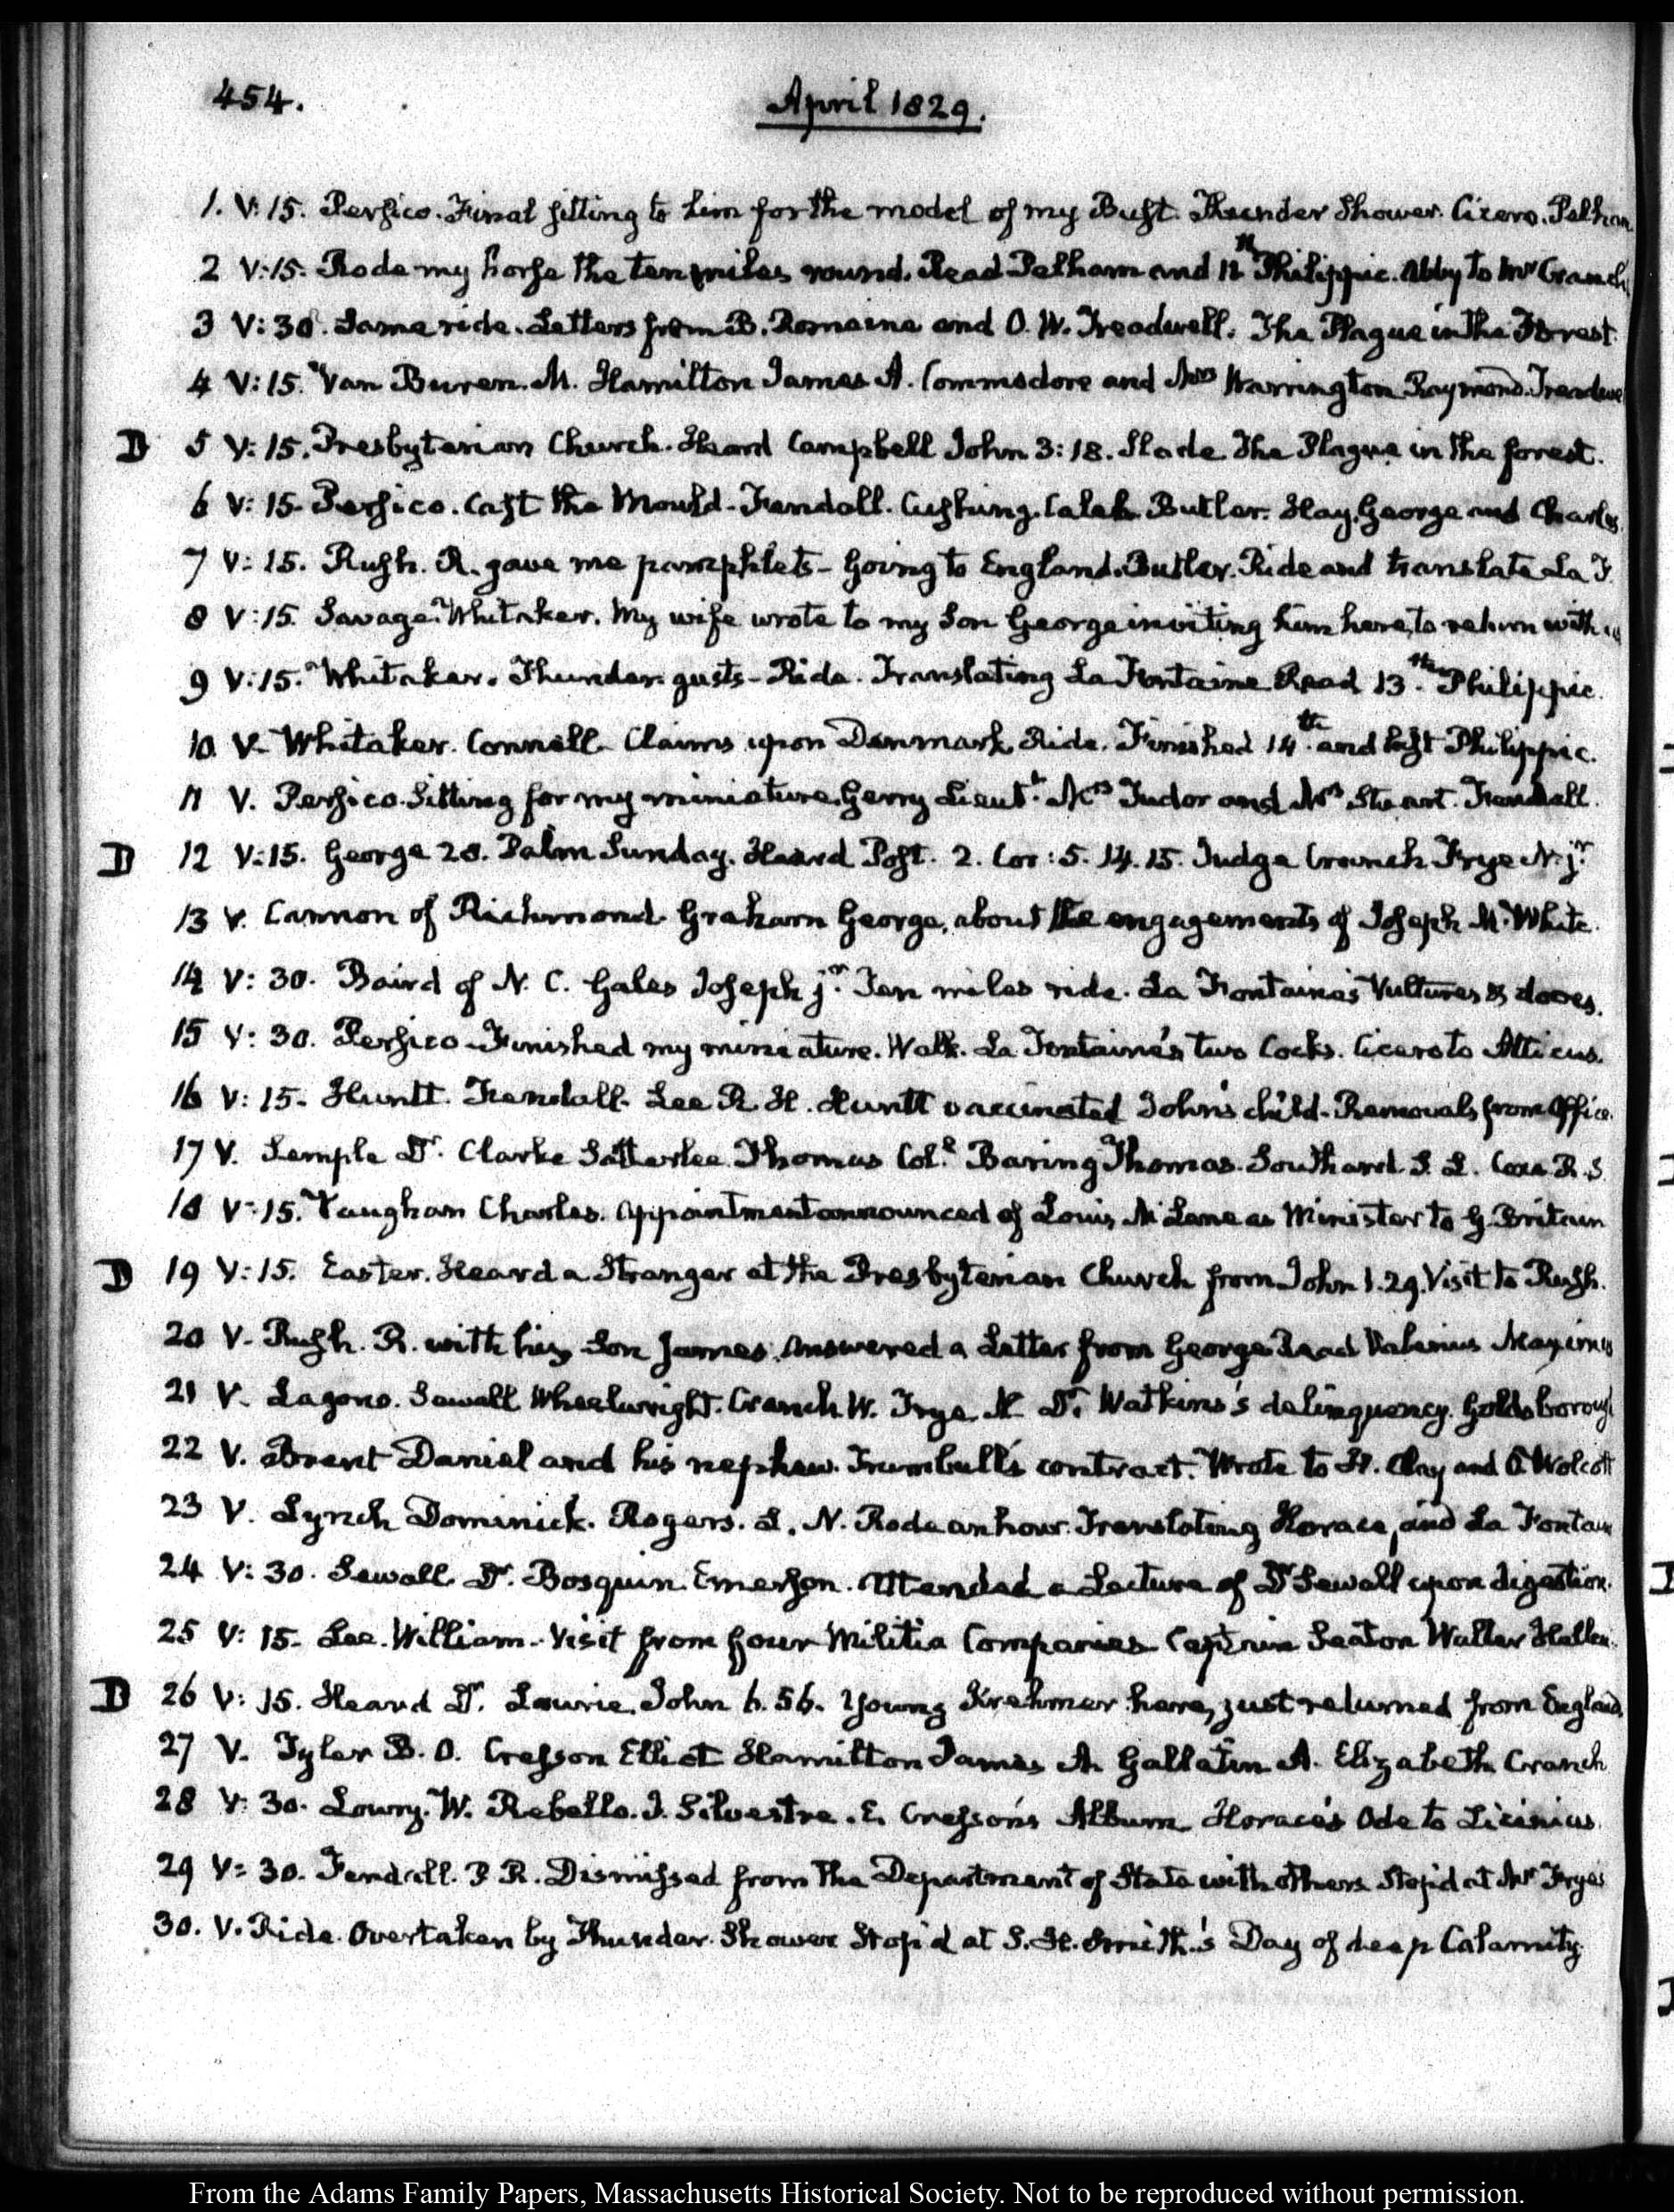 454.
April 1829.
1. V:15. Persico. Final sitting to him for the model of my Bust. Thunder Shower. Cicero. Pelham.
2 V:15. Rode my horse the ten miles round. Read Pelham and 12th Philippic. Abby to Mr Cranch
3 V:30. Same ride. Letters from B. Romaine and O. W. Treadwell. The Plague in the Forest.
4 V:15. Van Buren. M. Hamilton James A. Commodore and Mrs Warrington Raymond. Treadwell
D 5 V:15. Presbyterian Church. Heard Campbell John 3:18. Slade The Plague in the forest.
6 V:15. Persico. Cast the Mould. Fendall. Cushing. Caleb. Butler. Hay. George and Charles
7 V:15. Rush. R. gave me pamphlets - Going to England. Butler. Ride and translate La F.
8 V:15. Savage. Whitaker. My wife wrote to my Son George inviting him here, to return with us
9 V:15. Whitaker. Thunder gusts - Ride. Translating La Fontaine Read 13.th Philippic.
10. V. Whitaker. Connell. Claims upon Denmark, Ride. Finished 14.th and last Philippic.
11 V. Persico. Sitting for my miniature. Gerry Lieut.t Mrs Tudor and Mrs Stuart. Fendall.
D 12 V:15. George 28. Palm Sunday. Heard Post. 2. Cor: 5. 14. 15. Judge Cranch Frye N. jr.
13 V. Cannon of Richmond. Graham George, about the engagements of Joseph M. White.
14 V:30. Baird of N. C. Gales Joseph jr. Ten miles ride. La Fontaine's Vultures & doves.
15 V:30. Persico. Finished my miniature. Walk. La Fontaine's two Cocks. Cicero to Atticus.
16 V:15. Huntt. Fendall. Lee R. H. Huntt vaccinated John's child. Removals from Office.
17 V. Semple Dr. Clarke Satterlee. Thomas Col.l Baring Thomas. Southard. S. L. Coxe R. S
18 V:15. Vaughan Charles. Appointment announced of Louis McLane as Minister to G. Britain
D 19 V:15. Easter. Heard a Stranger at the Presbyterian Church from John 1.29. Visit to Rush.
20 V. Rush. R. with his Son James. Answered a Letter from George. Read Valerius Maximus
21 V. Lagono. Sewall Wheelwright. Cranch W. Frye. N. Dr. Watkins's delinquency. Goldsborough
22 V. Brent Daniel and his nephew. Trumbull's contract. Wrote to H. Clay and O Wolcott
23 V. Lynch Dominick. Rogers. L. N. Rode an hour. Translating Horace, and La Fontaine
24 V:30. Sewall Dr. Bosquin. Emerson. Attended a Lecture of Dr Sewall upon digestion.
25 V:15. Lee. William. Visit from four Militia Companies Captain Seaton Waller Hallen.
D 26 V:15. Heard Dr. Laurie. John 6. 56. Young Krehmer here, just returned from England.
27 V. Tyler B. O. Cresson Elliot Hamilton James A. Gallatin A. Elizabeth Cranch
28 V:30. Lowry. W. Rebello. J. Silvestre. E. Cresson's Album Horace's Ode to Licinius.
29 V:30. Fendall. P. R. Dismissed from the Department of State with others. Stop'd at Mr Frye's
30. V. Ride. Overtaken by Thunder Shower Stop'd at S. H. Smith's Day of deep Calamity.
From the Adams Family Papers, Massachusetts Historical Society. Not to be reproduced without permission.